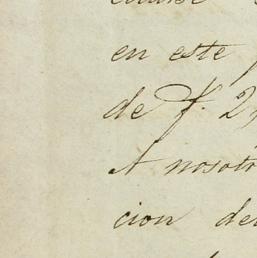 en este
de f. 2
A nosotr
cion de